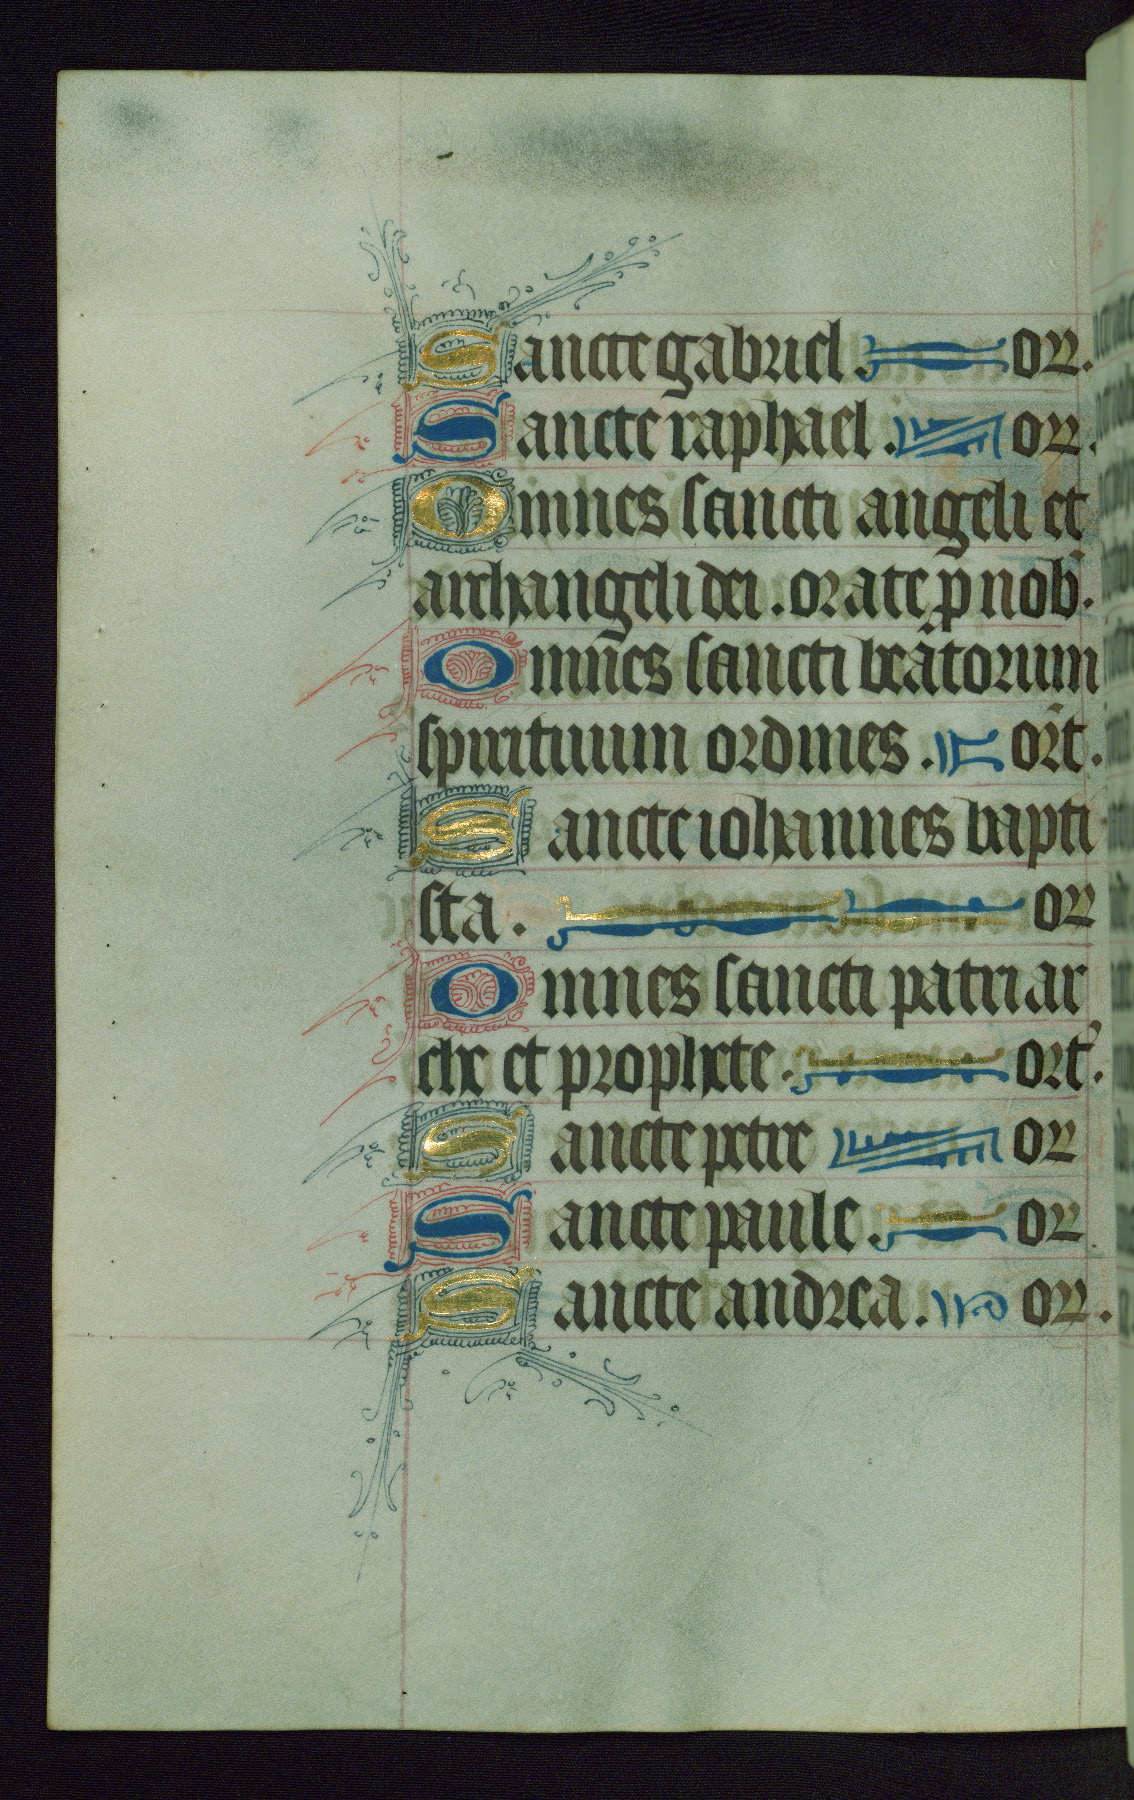 Sancte gabriel. or.
Sancte raphael. or.
Omnes sancti angeli et
archangeli dei. orate p nob̄.
Omn̄es sancti beatorum
spirituum ordines. ort.
Sancte iohannes bapti
sta. or
Omnes sancti patriar
che et prophete. ort.
Sancte petre or
Sancte paule. or
Sancte andrea. or.